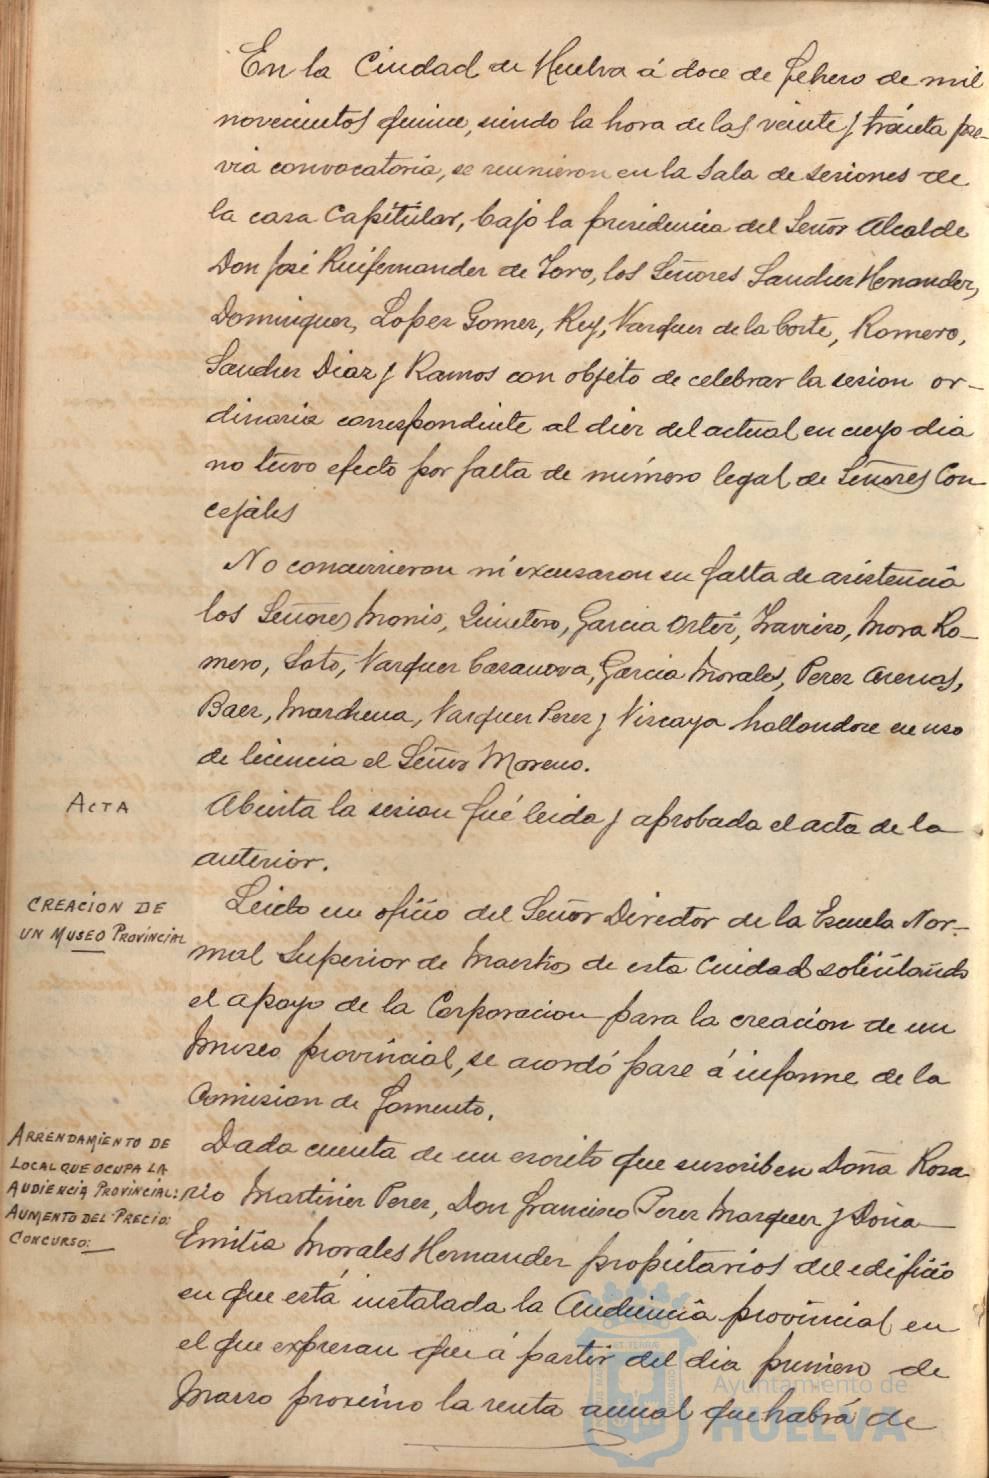 En la Ciudad de Huelva á doce de febrero de mil
novecientos quince, siendo la hora de las veinte y treinta pre-
via convocatoria, se reunieron en la Sala de sesiones de
la casa Capitular, bajo la presidencia del Señor Alcalde
Don José Ruifernandez de Toro, los Señores Sanchez Hernandez,
Dominguez, Lopez Gomez, Rey, Vazquez de la Corte, Romero,
Sanchez Diaz y Ramos con objeto de celebrar la sesion or-
dinaria correspondiente al diez del actual en cuyo dia
no tuvo efecto por falta de número legal de Señores Con
cejales
No concurrieron ni excusaron su falta de asistencia
los Señores Monis, Quintero, Garcia Ortiz, Mora Ro-
mero, Soto, Vazquez Casanova, Garcia Morales, Perez Arenas,
Baez, Marchena, Vazquez Perez y Viscaya hallandose en uso
de licencia el Señor Moreno.
ACTA
Abierta la sesion fué leida y aprobada el acta de la
anterior.
CREACION DE
UN MUSEO PROVINCIAL
Leido un oficio del Señor Director de la Escuela Nor-
mal Superior de Maestros de esta Ciudad solicitando
el apoyo de la Corporacion para la creacion de un
Museo provincial, se acordó pase á informe de la
Comision de Fomento.
ARRENDAMIENTO DE
LOCAL QUE OCUPA LA
AUDIENCIA PROVINCIAL:
AUMENTO DEL PRECIO:
CONCURSO:
Dada cuenta de un escrito que suscriben Doña Rosa
rio Martinez Perez, Don Francisco Perez Marquez y Doña
Emilia Morales Hernandez propietarios del edificio
en que está instalada la Audiencia provincial en
el que expresan que á partir del dia primero de
Marzo proximo la renta anual que habrá de
Ayuntamiento de
HUELVA